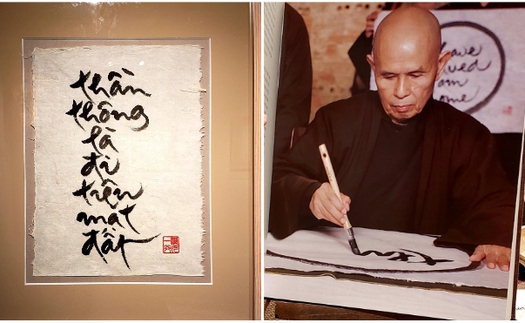 thần
thông
là
đi
trên
mặt
đất
have
ived
am
ome